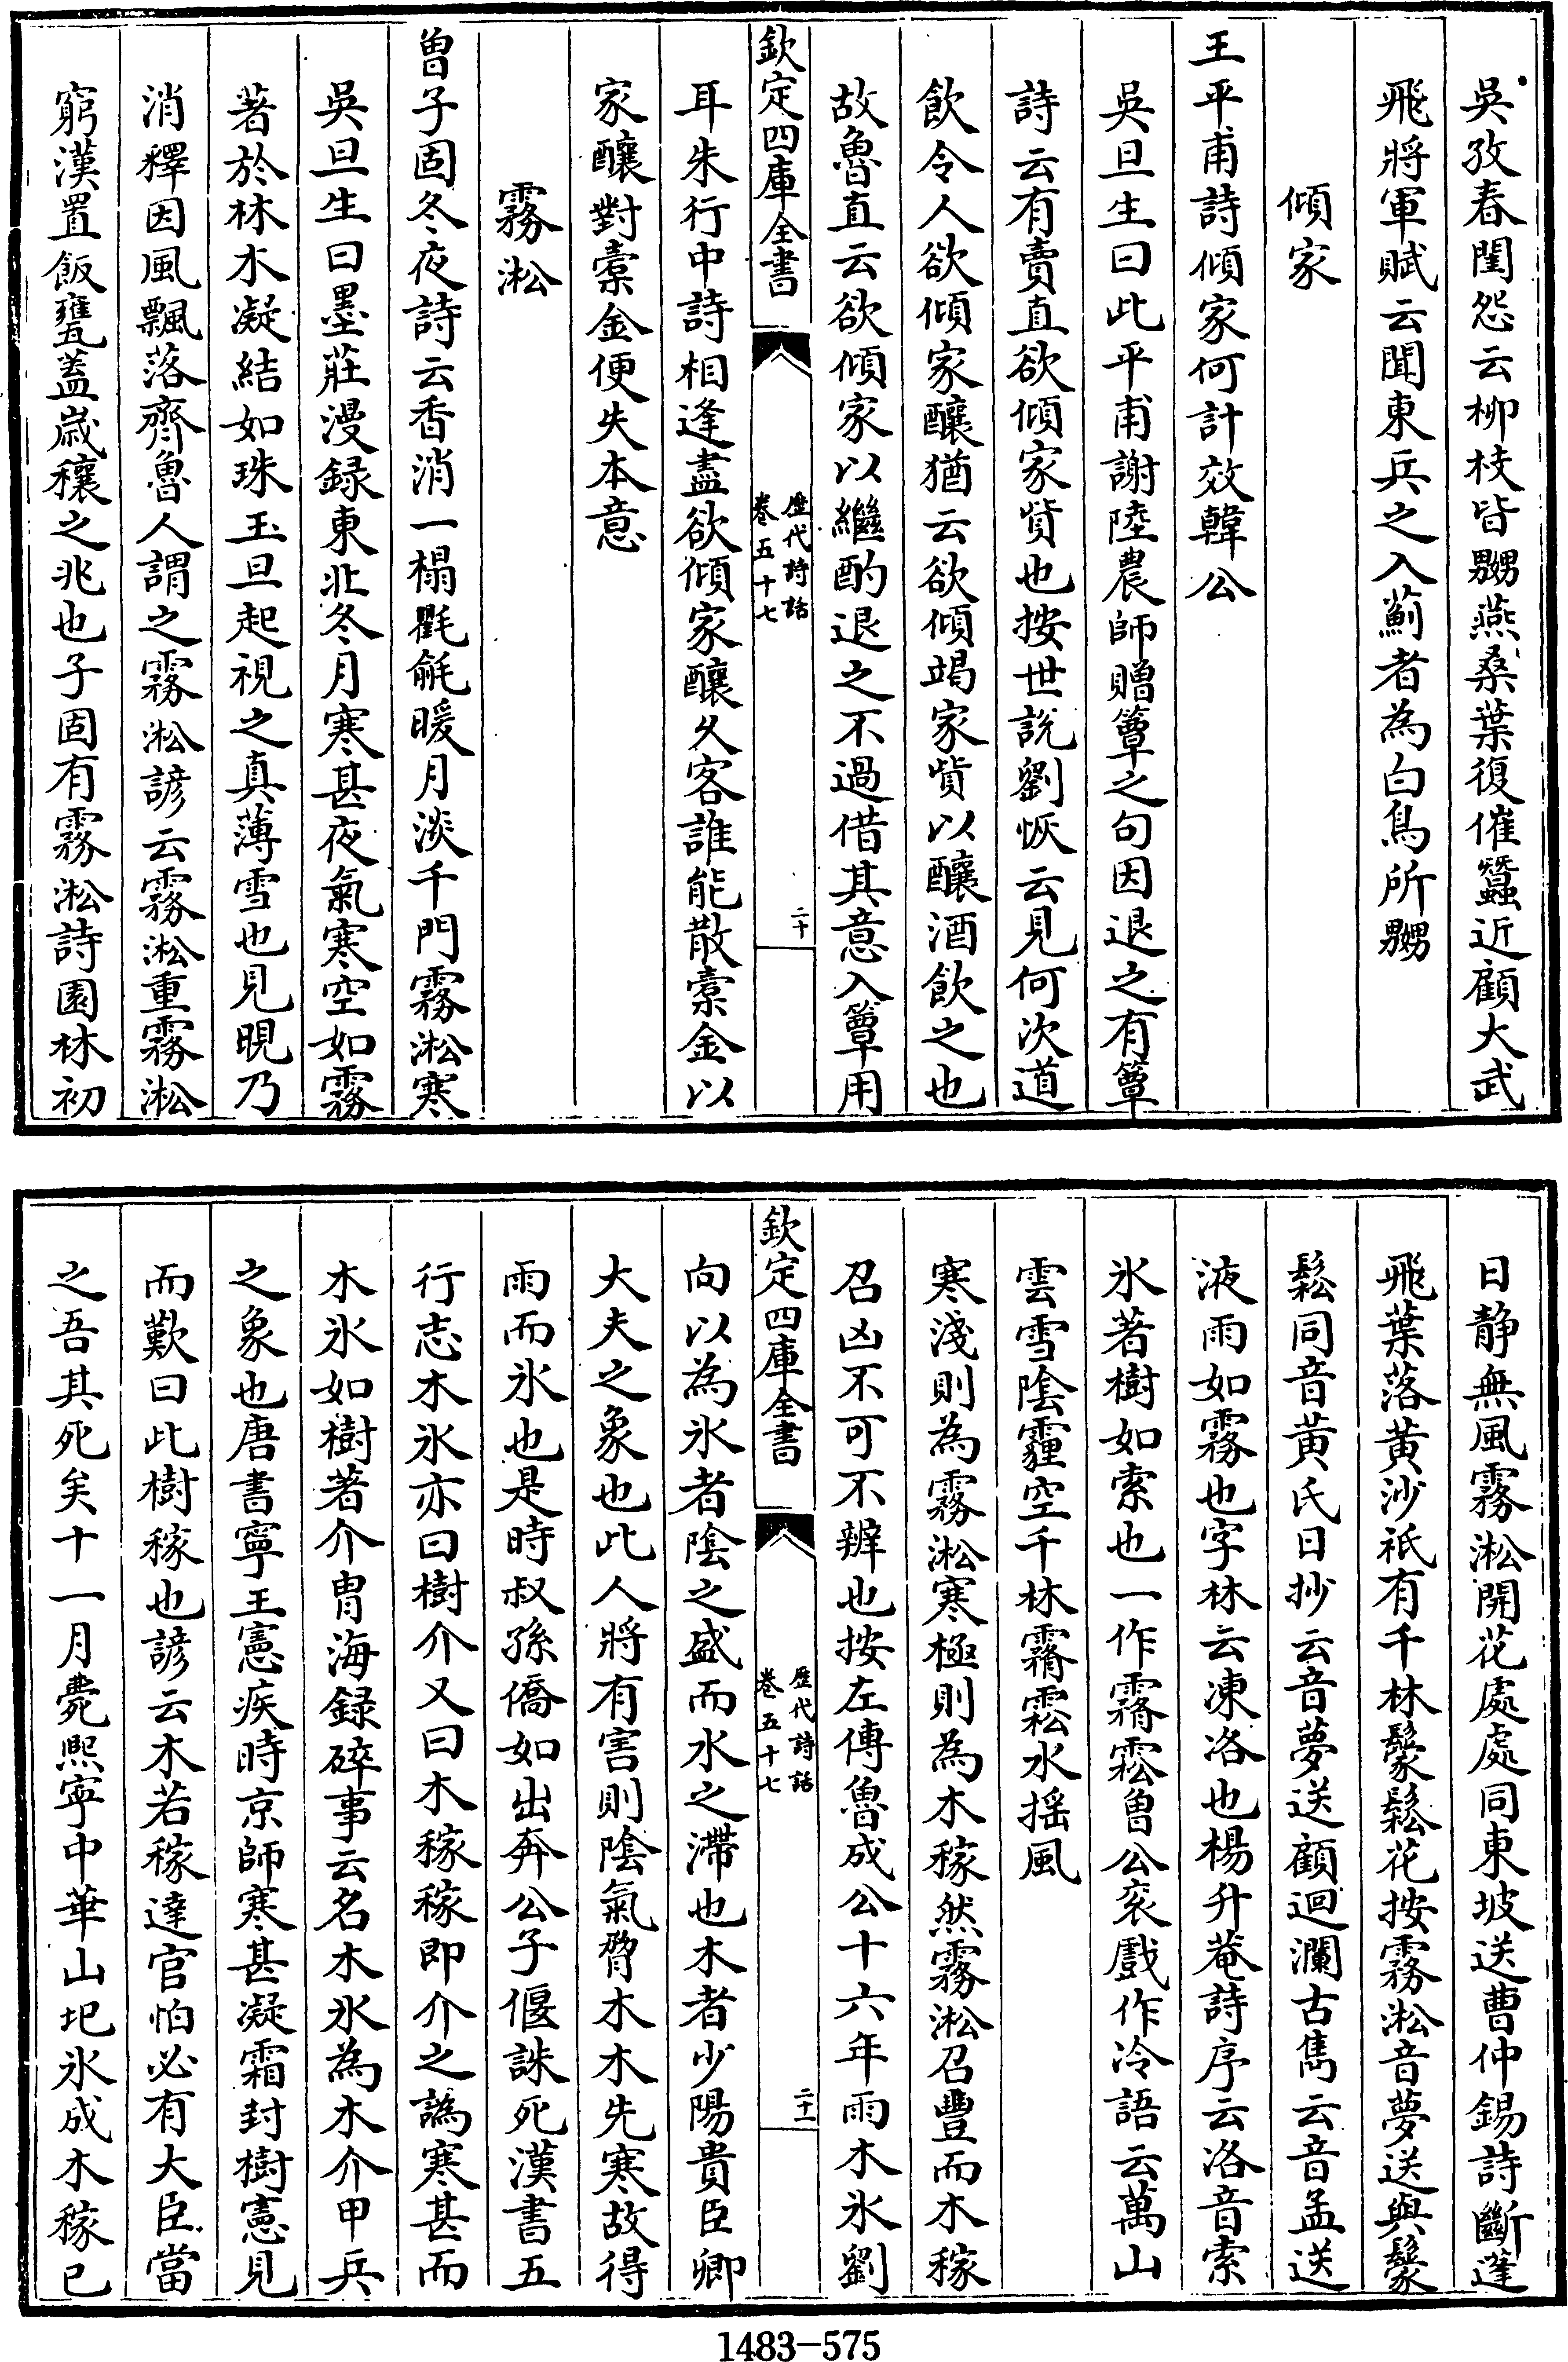 吳孜春閨怨云柳枝皆嬲燕桑葉復催蠶近顧大武
飛將軍賦云聞東兵之入薊者為白鳥所嬲
傾家
王平甫詩傾家何計效韓公
吳旦生曰此平甫謝陸農師贈簟之句因退之有簟
詩云有賣直欲傾家貲也按世説劉恢云見何次道
飲令人欲傾家釀猶云欲傾竭家貲以釀酒飲之也
故魯直云欲傾家以繼酌退之不過借其意入簟用
欽定四庫全書
歷代詩話
卷五十七
二十
耳朱行中詩相逢盡欲傾家釀久客誰能散橐金以
家釀對橐金便失本意
霧淞
曾子固冬夜詩云香消一榻氍毹暖月淡千門霧淞寒
吳旦生曰墨莊漫録東北冬月寒甚夜氣寒空如霧
著於林木凝結如珠玉旦起視之真薄雪也見晛乃
消釋因風飄落齊魯人謂之霧淞諺云霧淞重霧淞
窮漢置飯甕蓋歲穰之兆也子固有霧淞詩園林初
日静無風霧淞開花處處同東坡送曹仲錫詩斷蓬
飛葉落黃沙祇有千林鬖鬆花按霧淞音夢送與鬖
鬆同音黄氏日抄云音夢送顧迴瀾古雋云音孟送
液雨如霧也字林云凍洛也楊升菴詩序云洛音索
氷著樹如索也一作霿霿曾公衮戲作冷語云萬山
雲雪陰霾空千林霿霿水揺風
寒淺則為霧淞寒極則為木稼然霧淞召豐而木稼
召凶不可不辨也按左傳魯成公十六年雨木氷劉
欽定四庫全書
歷代詩話
卷五十七
二十一
向以為氷者陰之盛而水之滯也木者少陽貴臣卿
大夫之象也此人將有害則陰氣脅木木先寒故得
雨而氷也是時叔孫僑如出奔公子偃誅死漢書五
行志木氷亦曰樹介又曰木稼稼即介之譌寒甚而
木氷如樹著介冑海録碎事云名木氷為木介甲兵
之象也唐書寧王憲疾時京師寒甚凝霜封樹憲見
而歎曰此樹稼也諺云木若稼達官怕必有大臣當
之吾其死矣十一月薨熙寧中華山圮氷成木稼已
1483-575